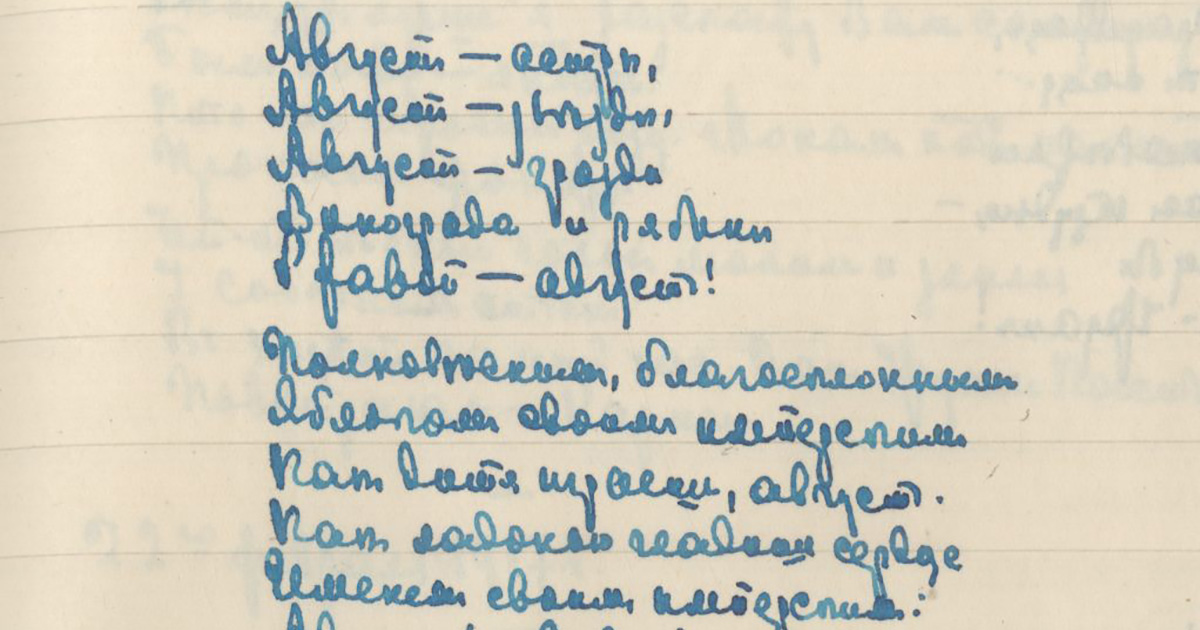 Августъ — астры,
Августъ — звѣзды,
Августъ — грозди
Винограда и рябины
Ржавой — августъ!
Полновѣснымъ, благосклоннымъ
Яблокомъ своимъ имперскимъ
Какъ дитя играешь, августъ.
Какъ ладонью гладишь сердце
Именемъ своимъ имперскимъ: